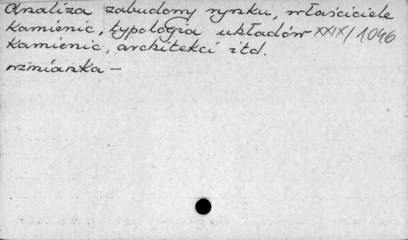 analiza zabudowy rynku, właściciele
kamienic, typologia układów XXIX/1046
kamienic, architekci itd.
wzmianka —